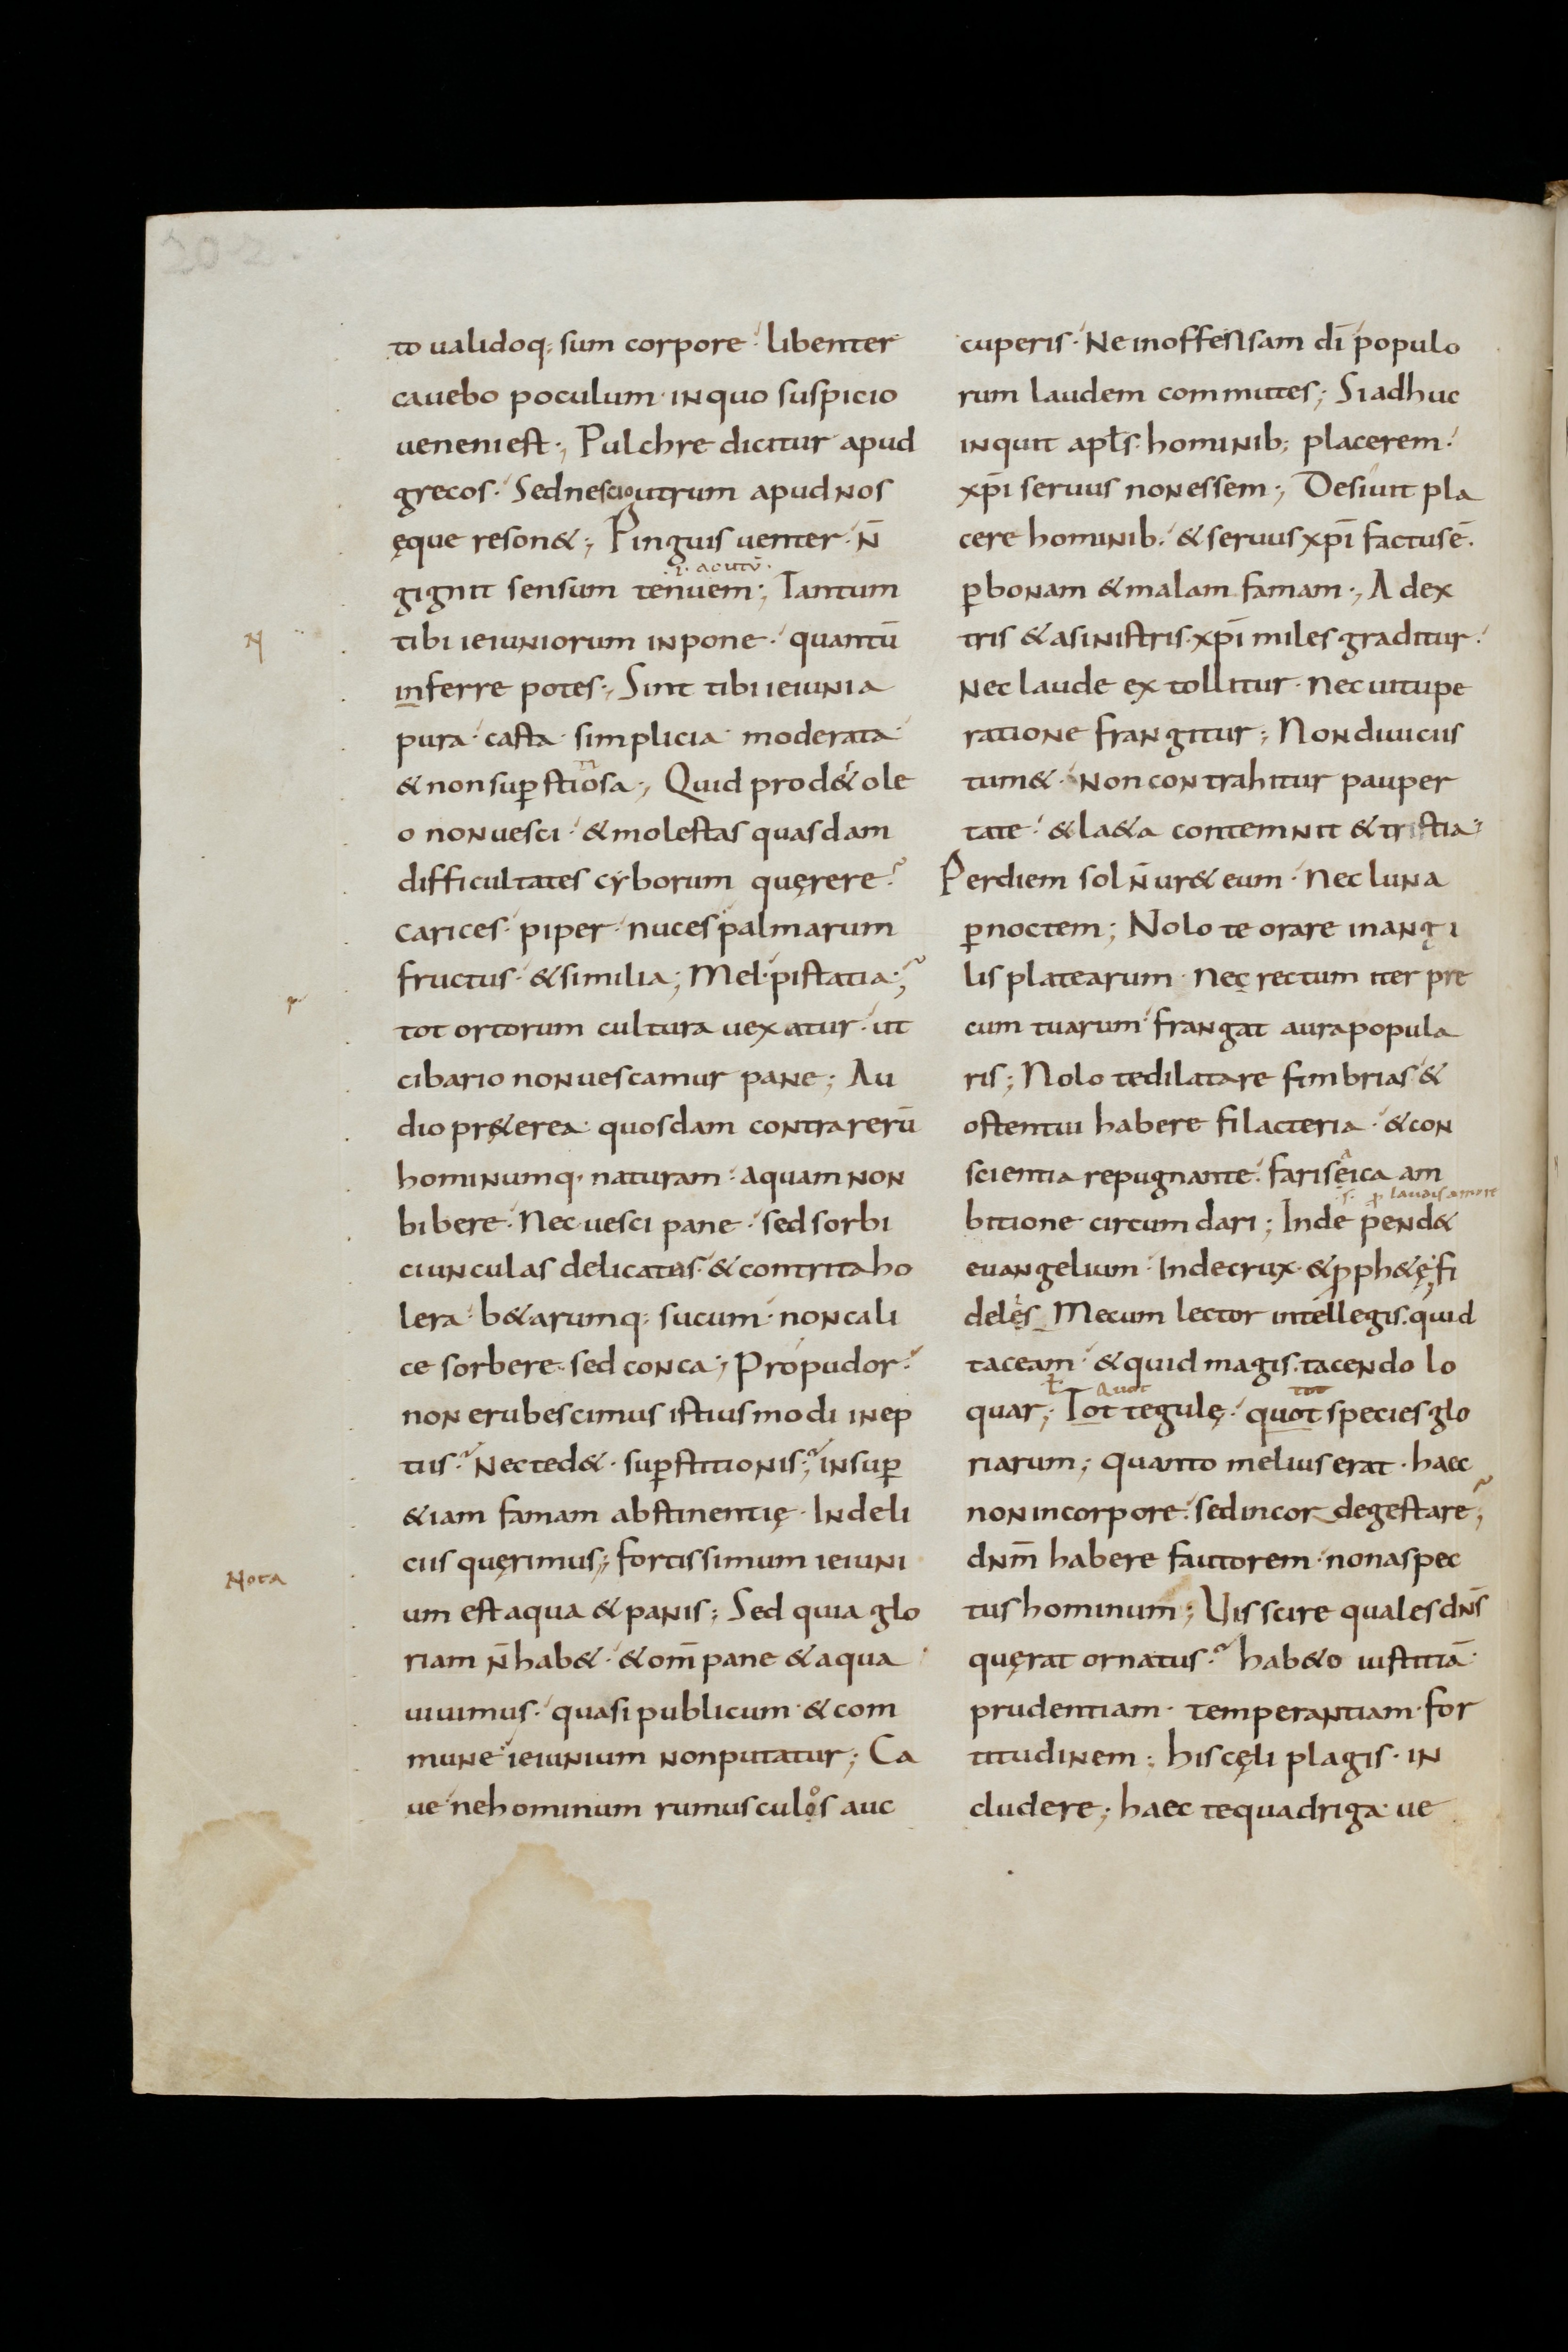 202.
to ualidoq; sum corpore· libenter
cauebo poculum· in quo suspicio
ueneni est·, Pulchre dicitur apud
grecos· Sed nescio utrum apud nos
ęque reson&; Pinguis uenter· n̄
.i. acutū.
gignit sensum tenuem; Tantum
N
tibi ieiuniorum inpone· quantū
inferre potes·, Sint tibi ieiunia
pura· casta· simplicia· moderata·
& non suꝑstitiosa·, Quid prod& ole
o non uesci· & molestas quasdam
difficultates cyborum quęrere?
carices· piper· nuces palmarum
fructus· & similia; Mel· pistatia·;
tot ortorum cultura uexatur· ut
cibario non uescamur pane; Au
dio pr&erea· quosdam contra rerū
hominumq· naturam· aquam non
bibere· Nec uesci pane· sed sorbi
ciunculas delicatas· & contrita ho
lera· b&arumq; sucum· non cali
ce sorbere· sed conca·, Propudor·
non erubescimus istius modi inep
tiis? Nec ted&· suꝑstitionis·? insuꝑ
&iam famam abstinentię· In deli
ciis quęrimus·, fortissimum ieiuni
Nota
um est aqua & panis; Sed quia glo
riam n̄ hab&· & om̄ pane & aqua
uiuimus· quasi publicum· & com
mune ieiunium non putatur; Ca
ue ne hominum rumusculos auc
cuperis· Ne in offensam dī populo
rum laudem commutes; Si adhuc
inquit apłs· hominib; placerem·
xp̄i seruus non essem·, Desiuit pla
cere hominib· & seruus xp̄i factus ē·
ꝑ bonam & malam famam·, A dex
tris & a sinistris· xp̄i miles graditur·
Nec laude extollitur· nec uitupe
ratione frangitur; Non diuiciis
tum&· Non contrahitur pauper
tate· & la&a contemnit & tristia·
Per diem sol n̄ ur& eum· nec luna
ꝑ noctem; Nolo te orare in angi
lis platearum· nec rectum iter pre
cum tuarum frangat aura popula
ris; Nolo te dilatare fimbrias· &
ostentui habere filacteria· & con
scientia repugnante· farisęica am
.s. ꝓ laudis amore
bitione circumdari; Inde pend&
euangelium· Inde crux· & ꝓph&ę· fi
deles Mecum lector intellegis· quid
taceam· & quid magis· tacendo lo
quot tot
quar; Tot tegulę· quot species glo
riarum; quanto melius erat· haec
non in corpore· sed in cor degestare;
dnm̄ habere fautorem· non aspec
tus hominum; Uis scire quales dn̄s
quęrat ornatus? hab&o iustitiā·
prudentiam· temperantiam· for
titudinem; his cęli plagis· in
cludere; haec te quadriga· ue